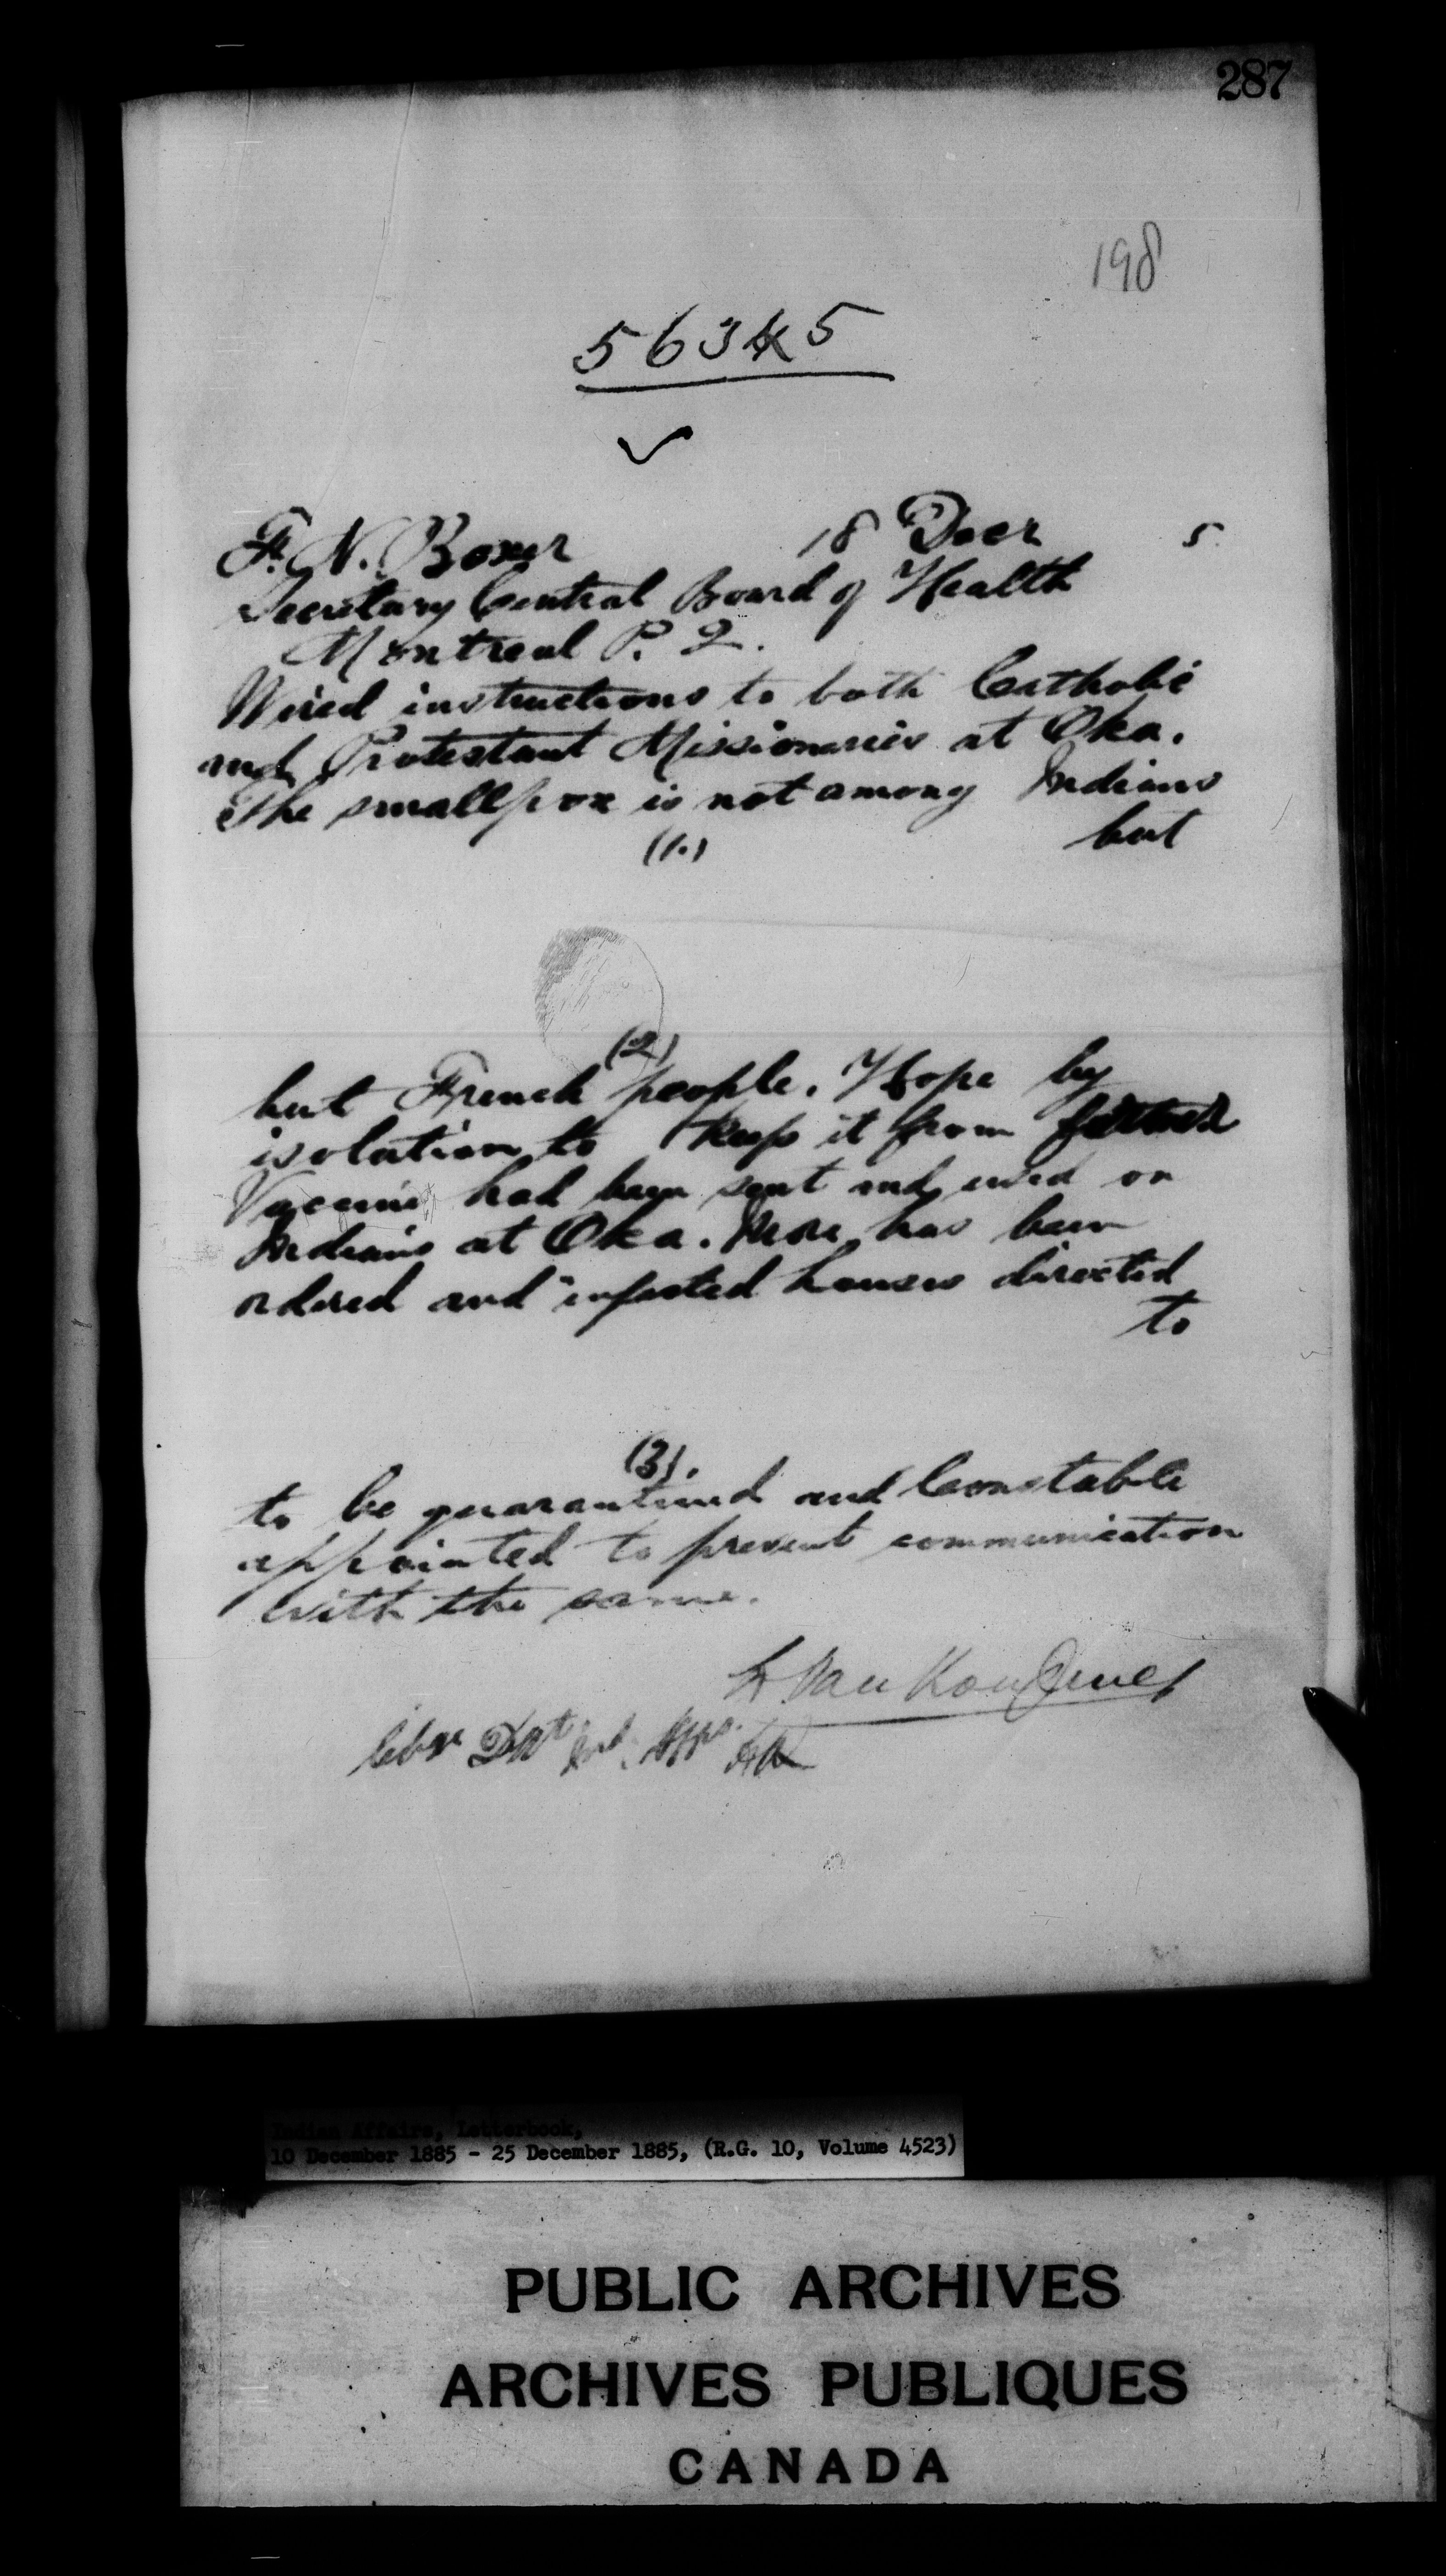 287
198
56345
F. N. Boxer 18 Decr 5
Secretary Central Board of Health
Montreal P. Q.
Wired instructions to both Catholic
and Protestant Missionaries at Oka.
The smallpox is not among Indians
(1.) but
(2)
but French people. Hope by
isolation to keep it from former
Vaccine had been sent and used on
Indians at Oka. More has been
ordered and infected houses directed
to
(3).
to be quarantined and Constable
appointed to prevent communication
with the same.
L. VanKoughnet
Chge Dpt Ind. Affs.
Indian Affairs, Letterbook,
10 December 1885 - 25 December 1885, (R.G. 10, Volume 4523)
PUBLIC ARCHIVES
ARCHIVES PUBLIQUES
CANADA